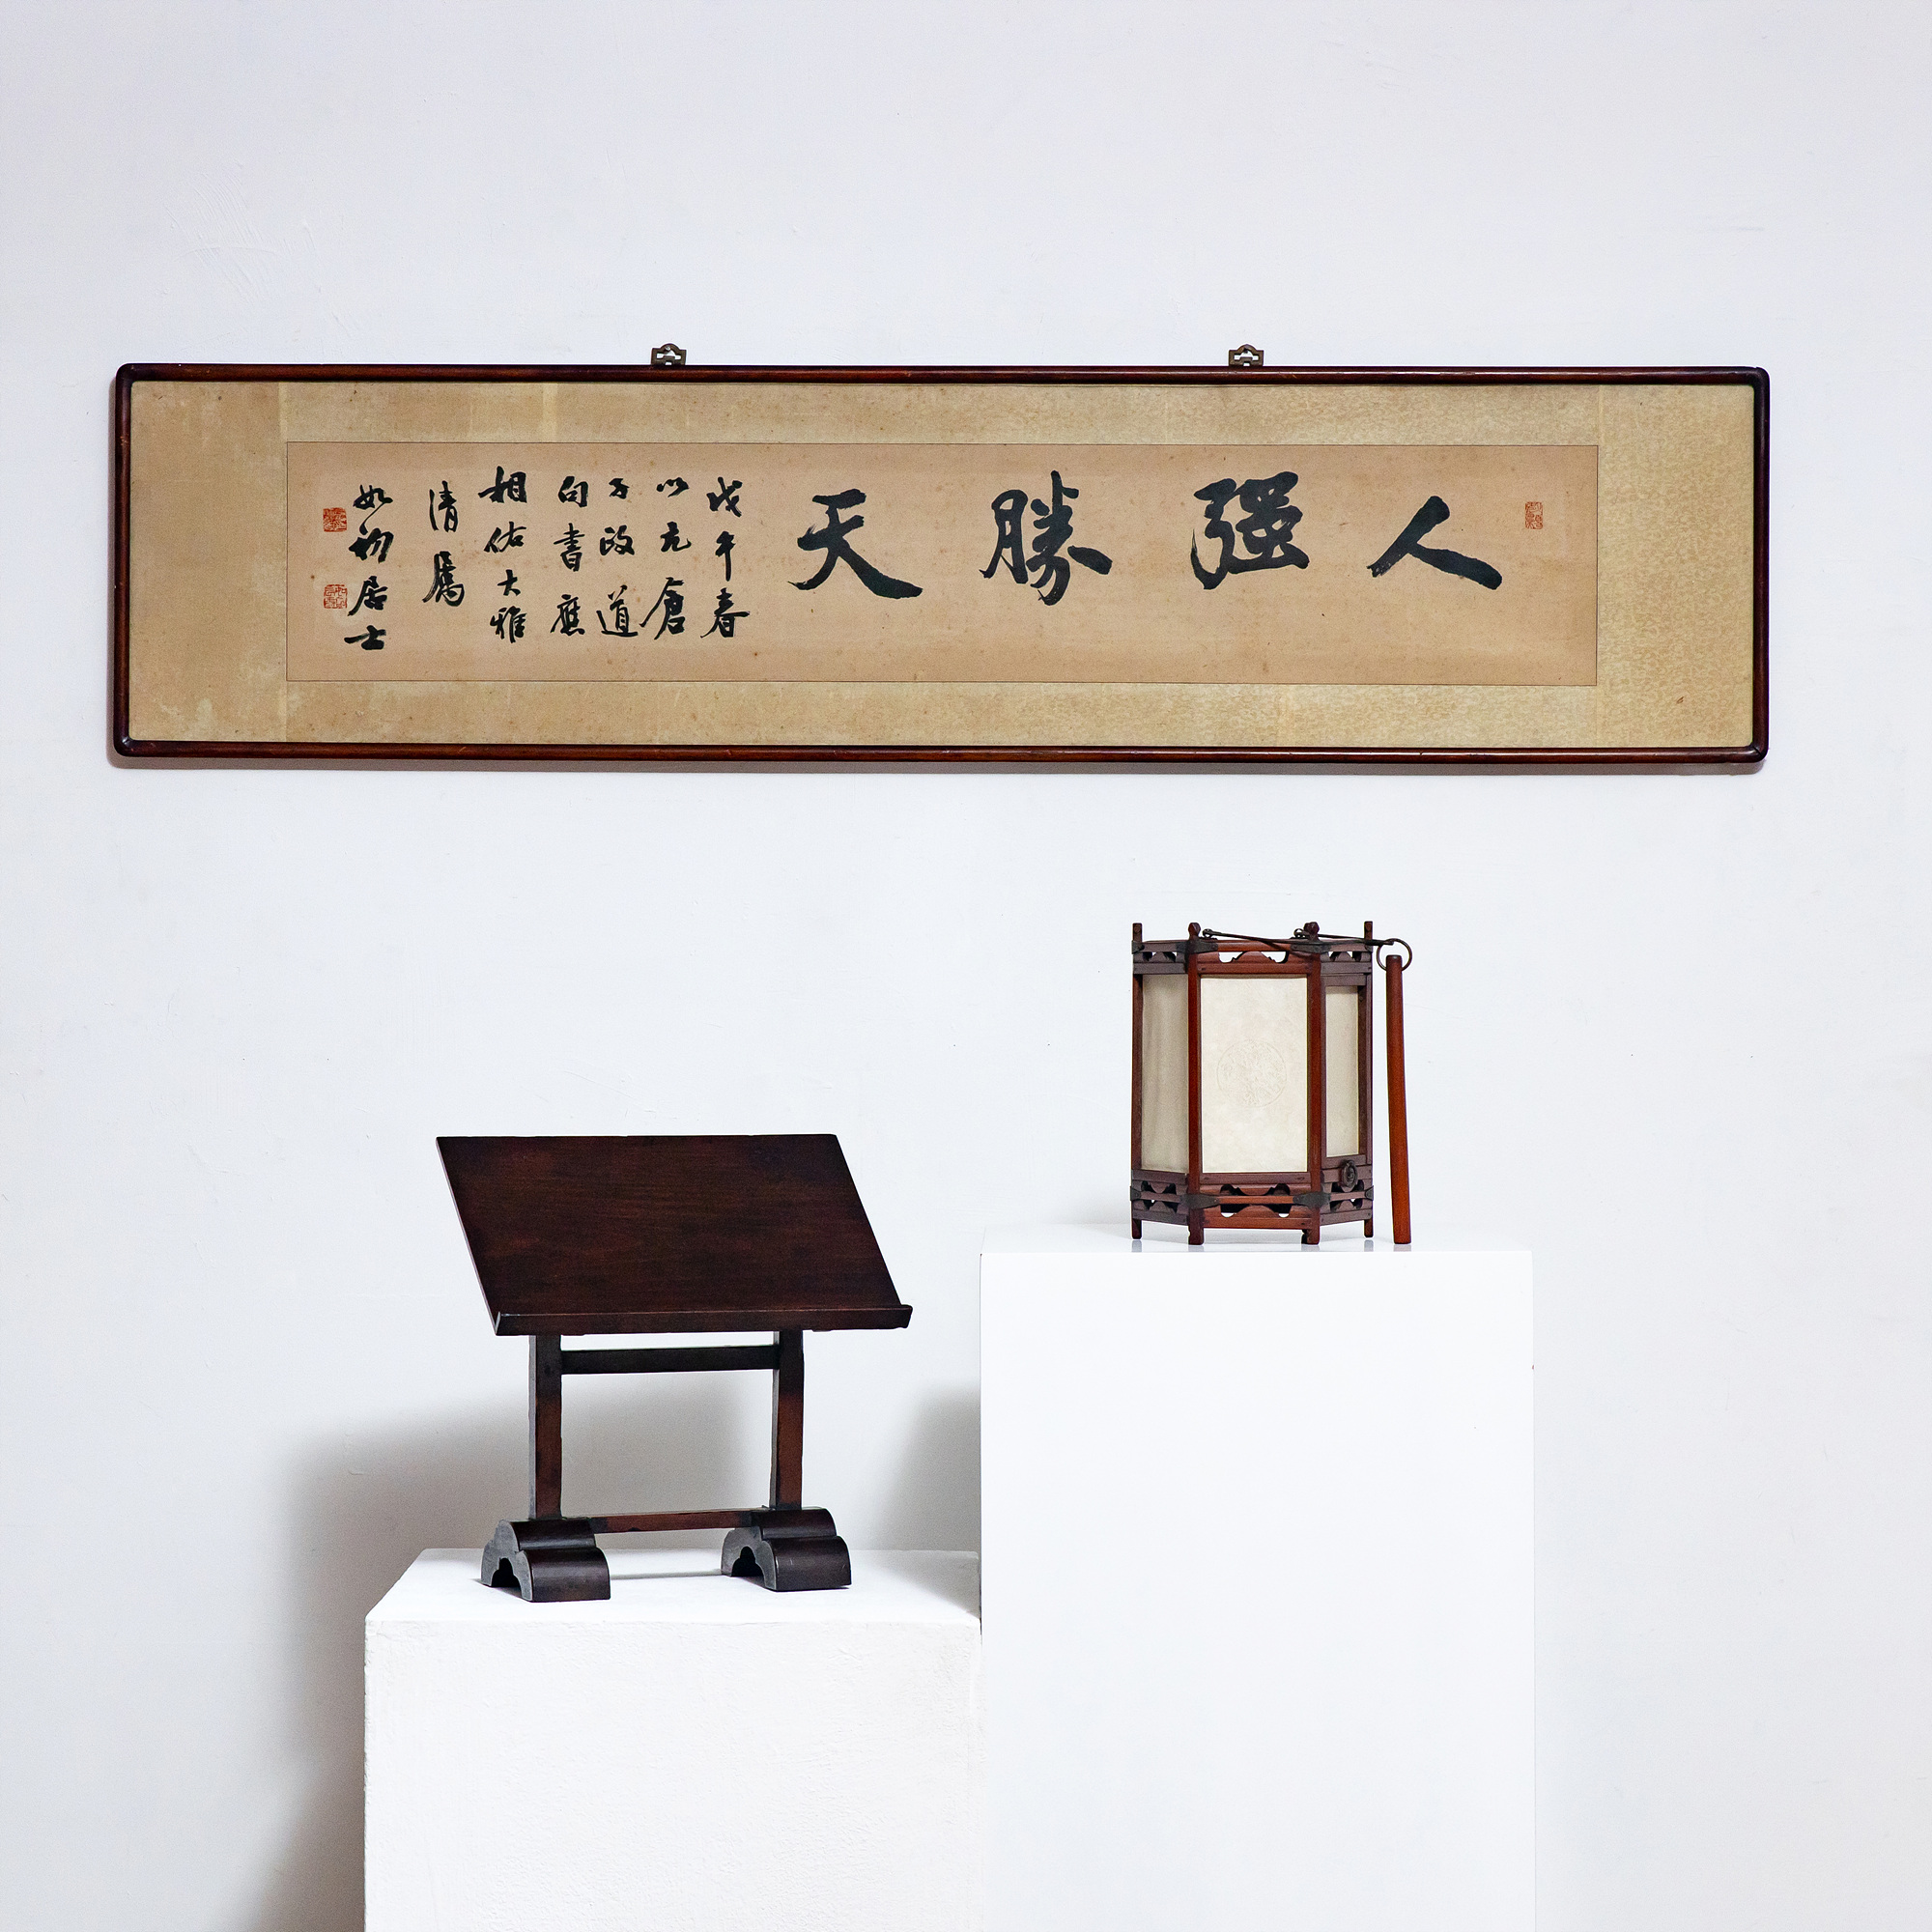 人强勝天
戊午春
以亢倉
子政道
句書應
相佑大雅
清屬
如初居士